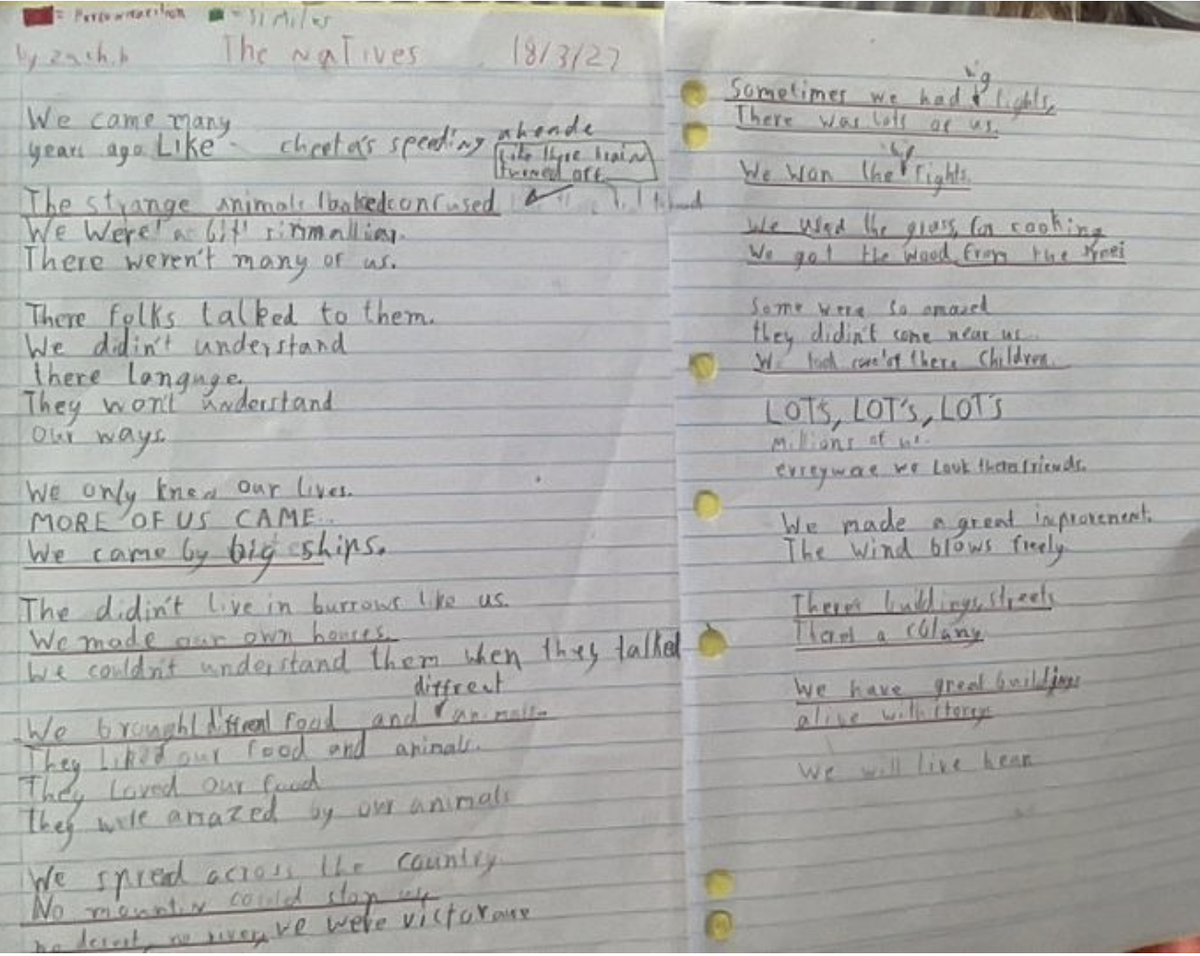 = Personification = Similes
by zach.b The Natives 18/3/22
We came many
years ago Like cheeta's speeding aheade
like there brain
turned off
The strange animals looked confused
We Were 'a bit' simmaliar.
There weren't many of us.
There folks talked to them.
We didin't understand
there languge.
They won't understand
our ways.
We only knew our lives.
MORE OF US CAME..
We came by big ships.
The didin't live in burrows like us.
We made our own houses.
We couldn't understand them when they talked
diffrent
We brought diffrent food and animals.
They liked our food and animals.
They Loved our food
They were amazed by our animals
We spread across the country
No mountin could stop us
no desert, no river, we were victorouse
Sometimes we had big fights,
There was lots of us.
We won the big fights.
We used the grass for cooking
We got the wood from the
Some were so amazed
they didin't come near us
We took of there children.
LOTS, LOT'S, LOT'S
Millions of us.
erreyware we took there friends.
We made a great improvement.
The wind blows freely
buildings, streets
a colany
We have great buildings
alive with storeys
We will live hear